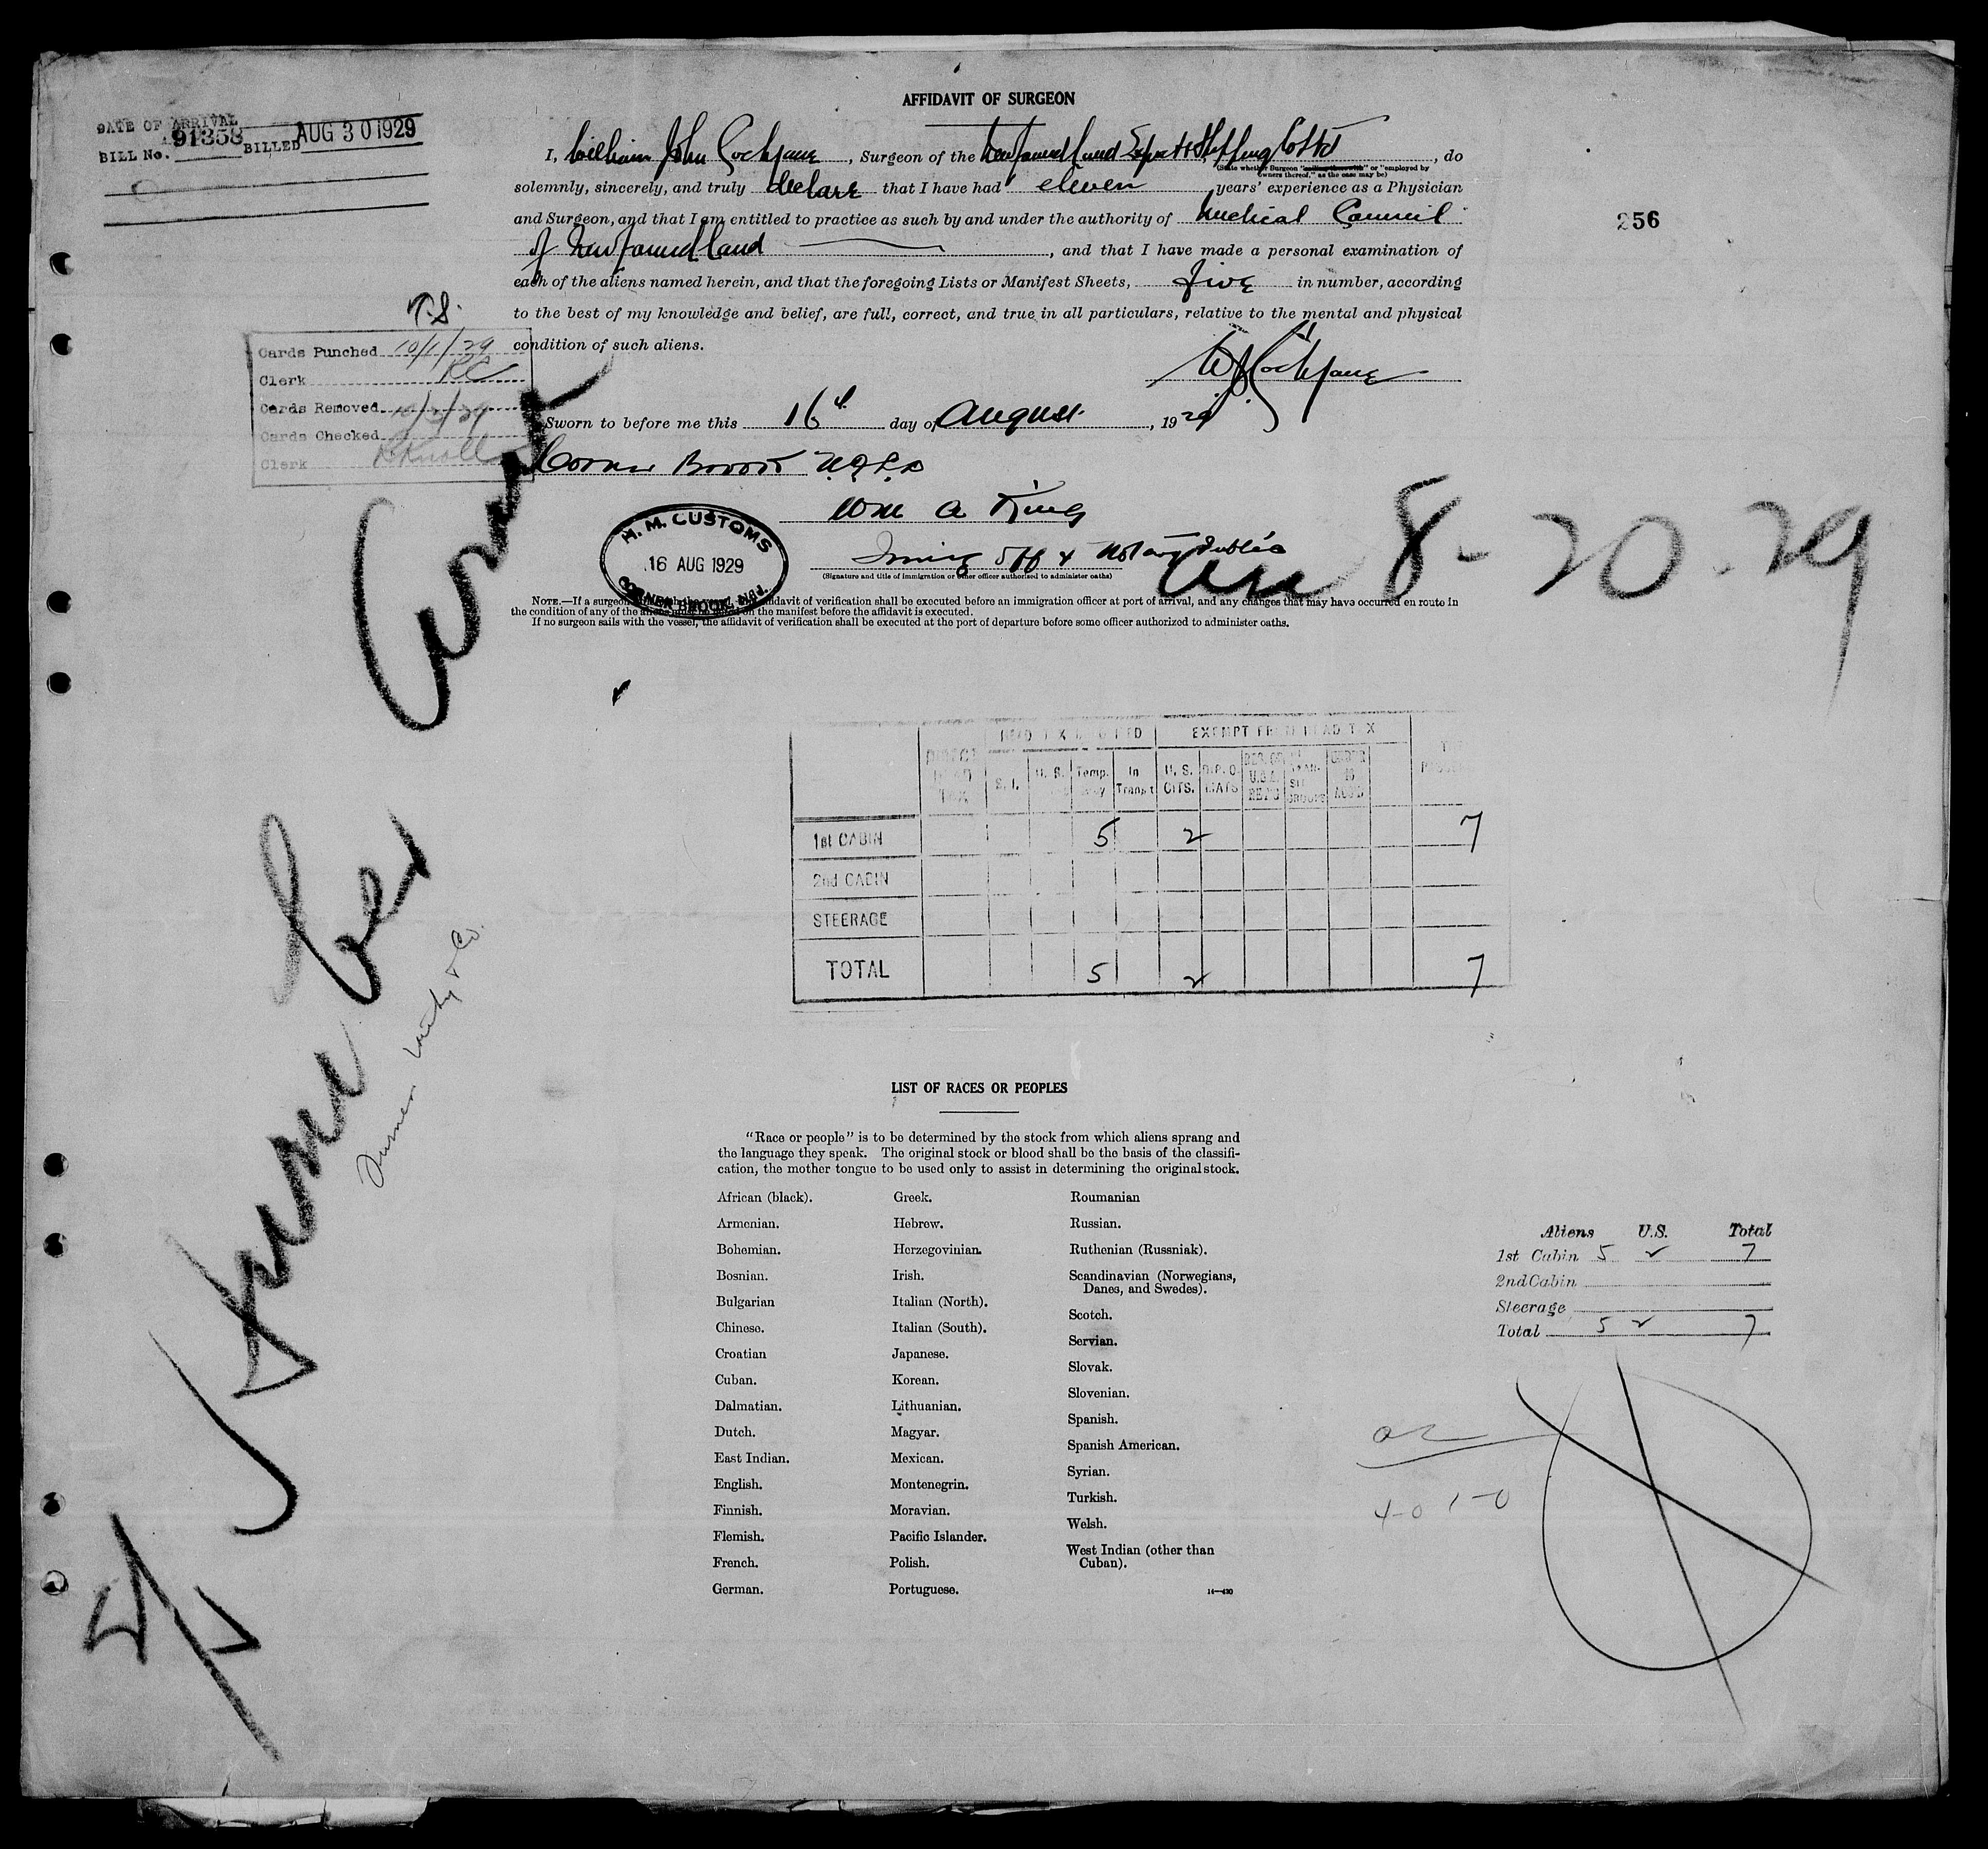 AFFIDAVIT OF SURGEON
DATE OF ARRIVAL
BILL No. 91358 BILLED AUG 30 1929
I, William John Cochrane, Surgeon of the Newfoundland Export & Shipping Co Ltd, do
(State whether Surgeon "sailing therewith" or "employed by
owners thereof," as the case may be)
solemnly, sincerely, and truly declare that I have had eleven years' experience as a Physician
and Surgeon, and that I am entitled to practice as such by and under the authority of Medical Council
of Newfoundland, and that I have made a personal examination of
each of the aliens named herein, and that the foregoing Lists or Manifest Sheets, five in number, according
to the best of my knowledge and belief, are full, correct, and true in all particulars, relative to the mental and physical
condition of such aliens.
256
T.S.
Cards Punched 10/1/29
Clerk RC
Cards Removed
Cards Checked
Clerk
WJ Cochrane
Sworn to before me this 16th day of August, 1929
Corner Brook NFLD
Wm A King
Immig Off & Notary Public
(Signature and title of immigration or other officer authorized to administer oaths)
H. M. CUSTOMS
16 AUG 1929
CORNER BROOK, Nfld.
Arr 8-20-29
NOTE.—If a surgeon sails with the vessel, the affidavit of verification shall be executed before an immigration officer at port of arrival, and any changes that may have occurred en route in
the condition of any of the aliens must be noted on the manifest before the affidavit is executed.
If no surgeon sails with the vessel, the affidavit of verification shall be executed at the port of departure before some officer authorized to administer oaths.
HEAD TAX EXEMPT FROM HEAD TAX
DIRECT HEAD TAX S. I. U. S. Temp. In Transit U. S. CITS. DIPLOMATS
1st CABIN 5 2 7
2nd CABIN
STEERAGE
TOTAL 5 2 7
LIST OF RACES OR PEOPLES
"Race or people" is to be determined by the stock from which aliens sprang and
the language they speak. The original stock or blood shall be the basis of the classifi-
cation, the mother tongue to be used only to assist in determining the original stock.
African (black).
Armenian.
Bohemian.
Bosnian.
Bulgarian
Chinese.
Croatian
Cuban.
Dalmatian.
Dutch.
East Indian.
English.
Finnish.
Flemish.
French.
German.
Greek.
Hebrew.
Herzegovinian.
Irish.
Italian (North).
Italian (South).
Japanese.
Korean.
Lithuanian.
Magyar.
Mexican.
Montenegrin.
Moravian.
Pacific Islander.
Polish.
Portuguese.
Roumanian
Russian.
Ruthenian (Russniak).
Scandinavian (Norwegians,
Danes, and Swedes).
Scotch.
Servian.
Slovak.
Slovenian.
Spanish.
Spanish American.
Syrian.
Turkish.
Welsh.
West Indian (other than
Cuban).
14—430
Aliens U.S. Total
1st Cabin 5 2 7
2nd Cabin
Steerage
Total 5 2 7